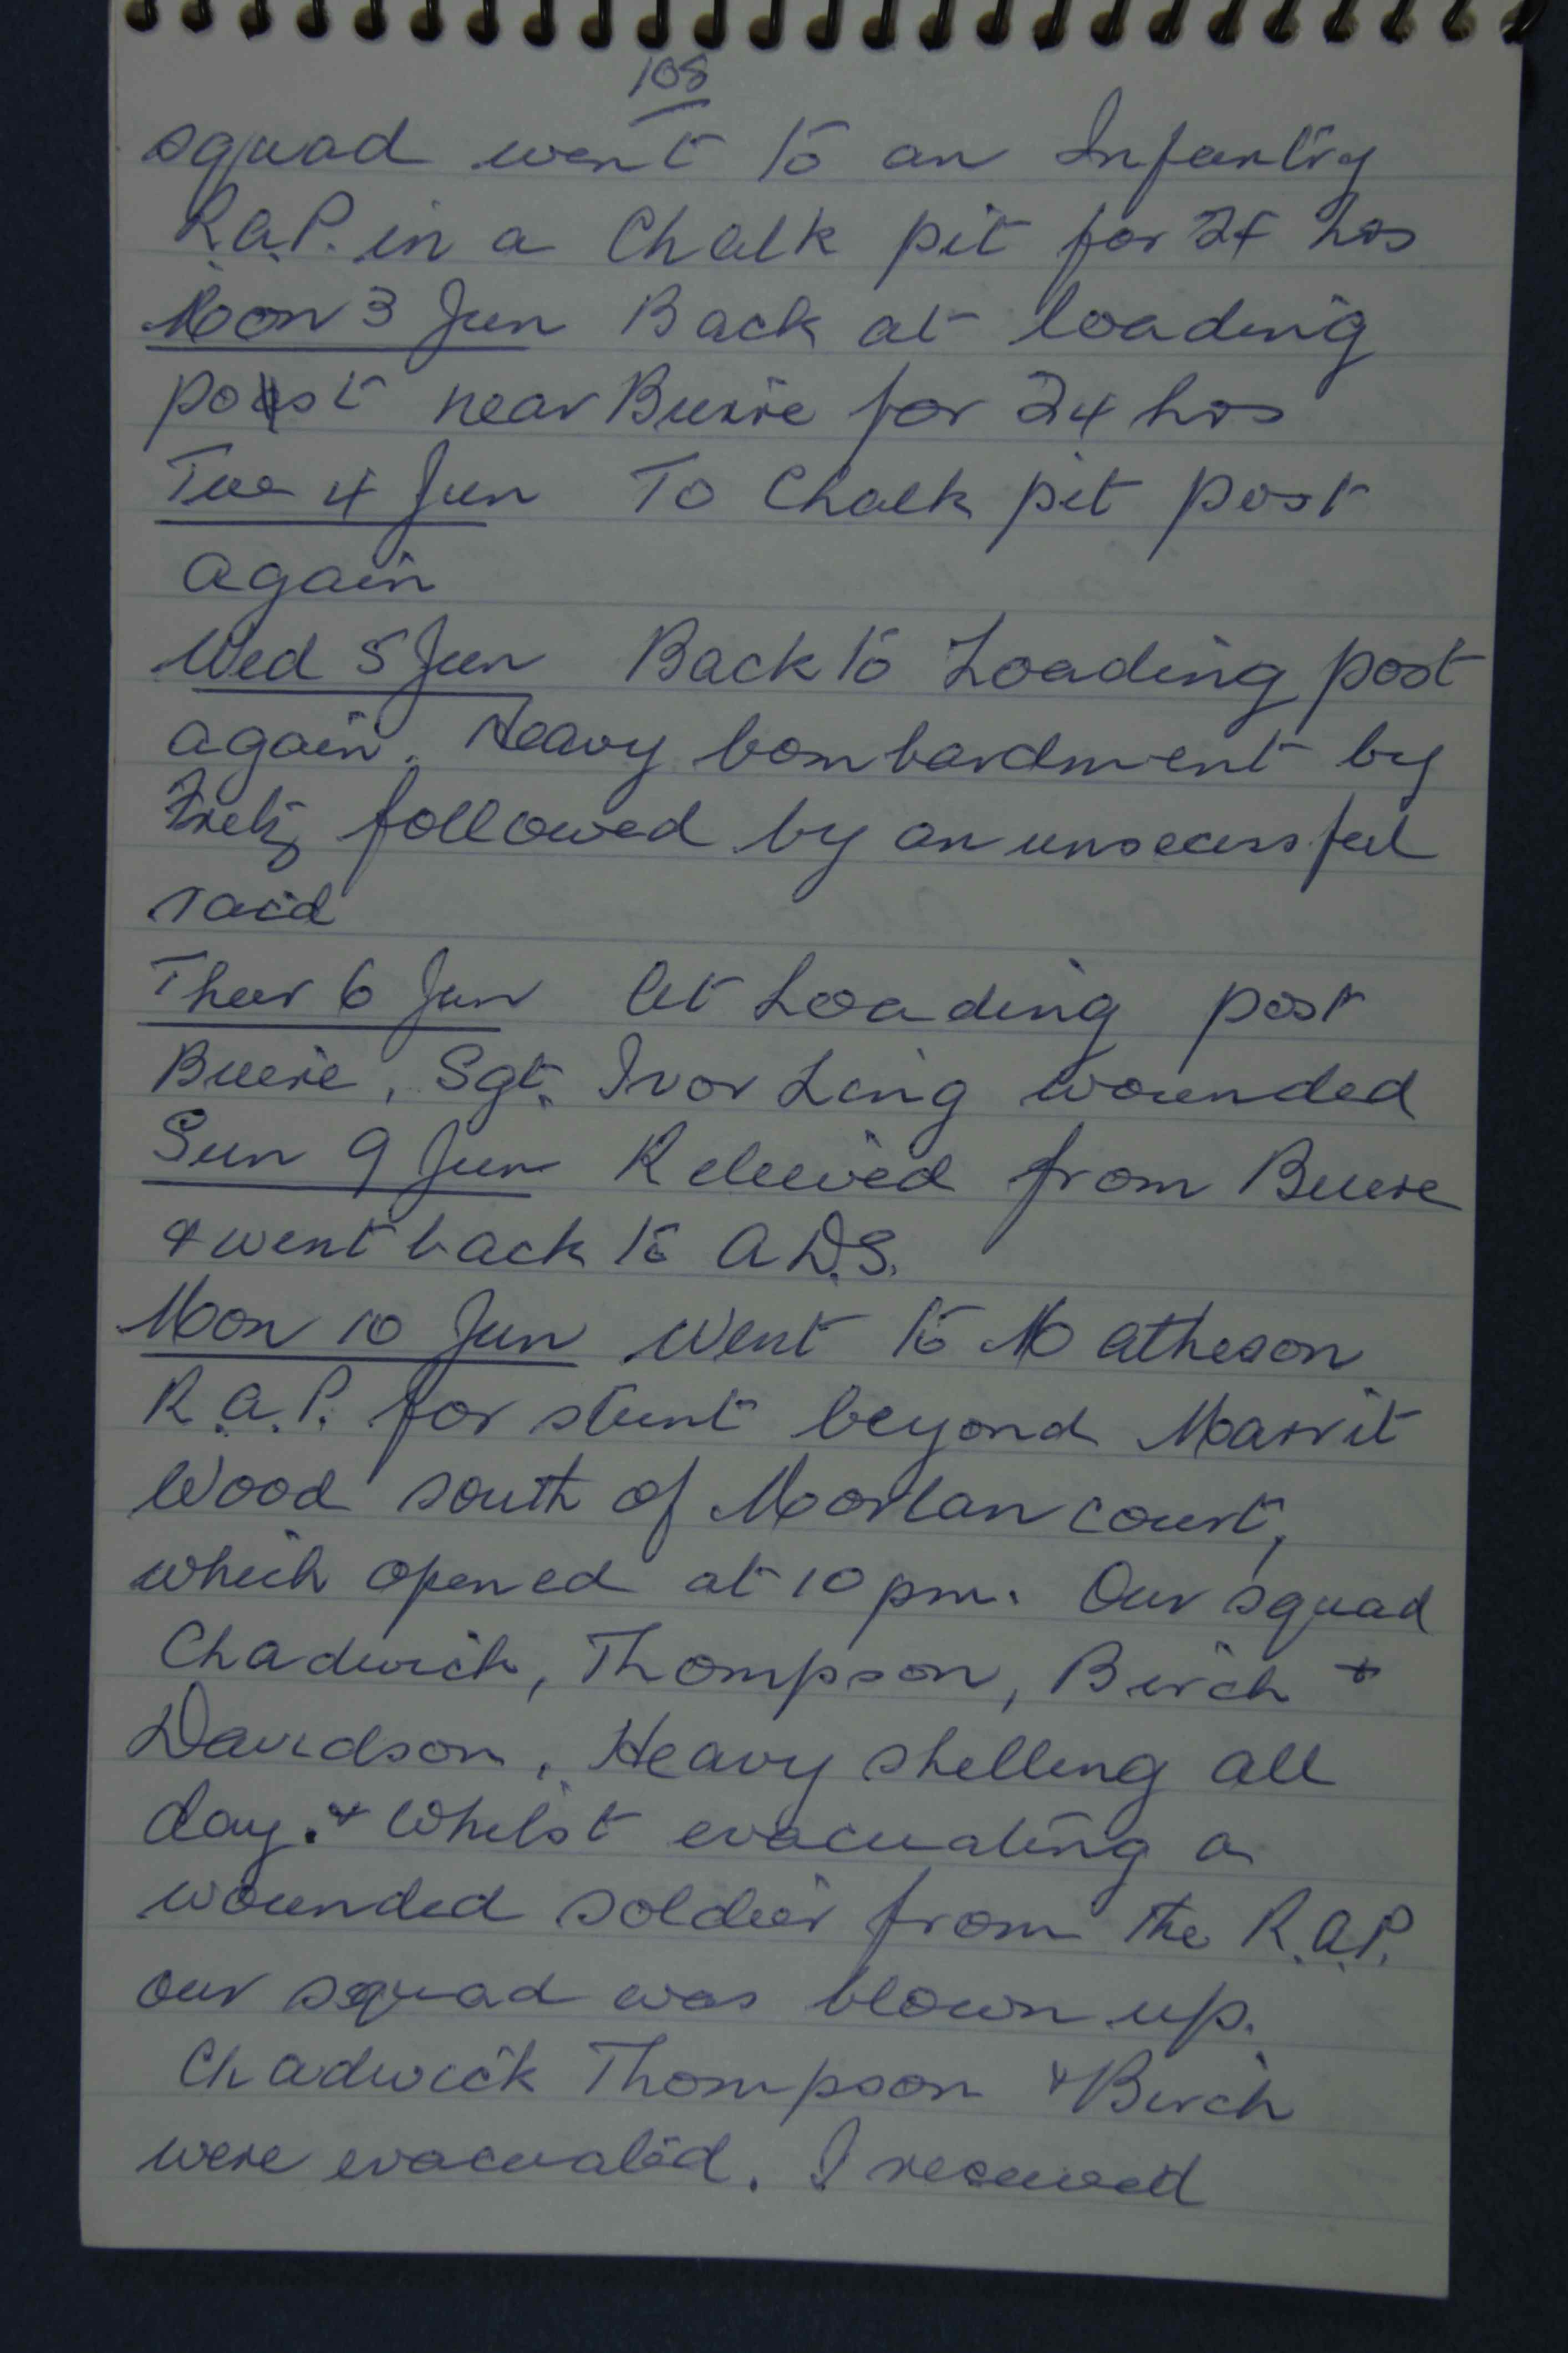 108
squad went to an Infantry
R.a.P. in a Chalk pit for 24 hrs
Mon 3 Jun Back at loading
post near Buire for 24 hrs
Tue 4 Jun To Chalk pit post
again
Wed 5 Jun Back to Loading post
again. Heavy bombardment by
Fritz followed by an unsecessful
raid
Thur 6 Jun At Loading post
Buire, Sgt. Ivor Ling wounded
Sun 9 Jun Releived from Buire
& went back to A D.S.
Mon 10 Jun Went to Matheson
R.a.P. for stunt beyond Marrit
Wood south of Morlancourt,
which opened at 10 pm. Our squad
Chadwick, Thompson, Birch &
Davidson. Heavy shelling all
day. & Whilst evacuating a
wounded soldier from the R.a.P.
our squad was blown up.
Chadwick Thompson & Birch
were evacuated. I received